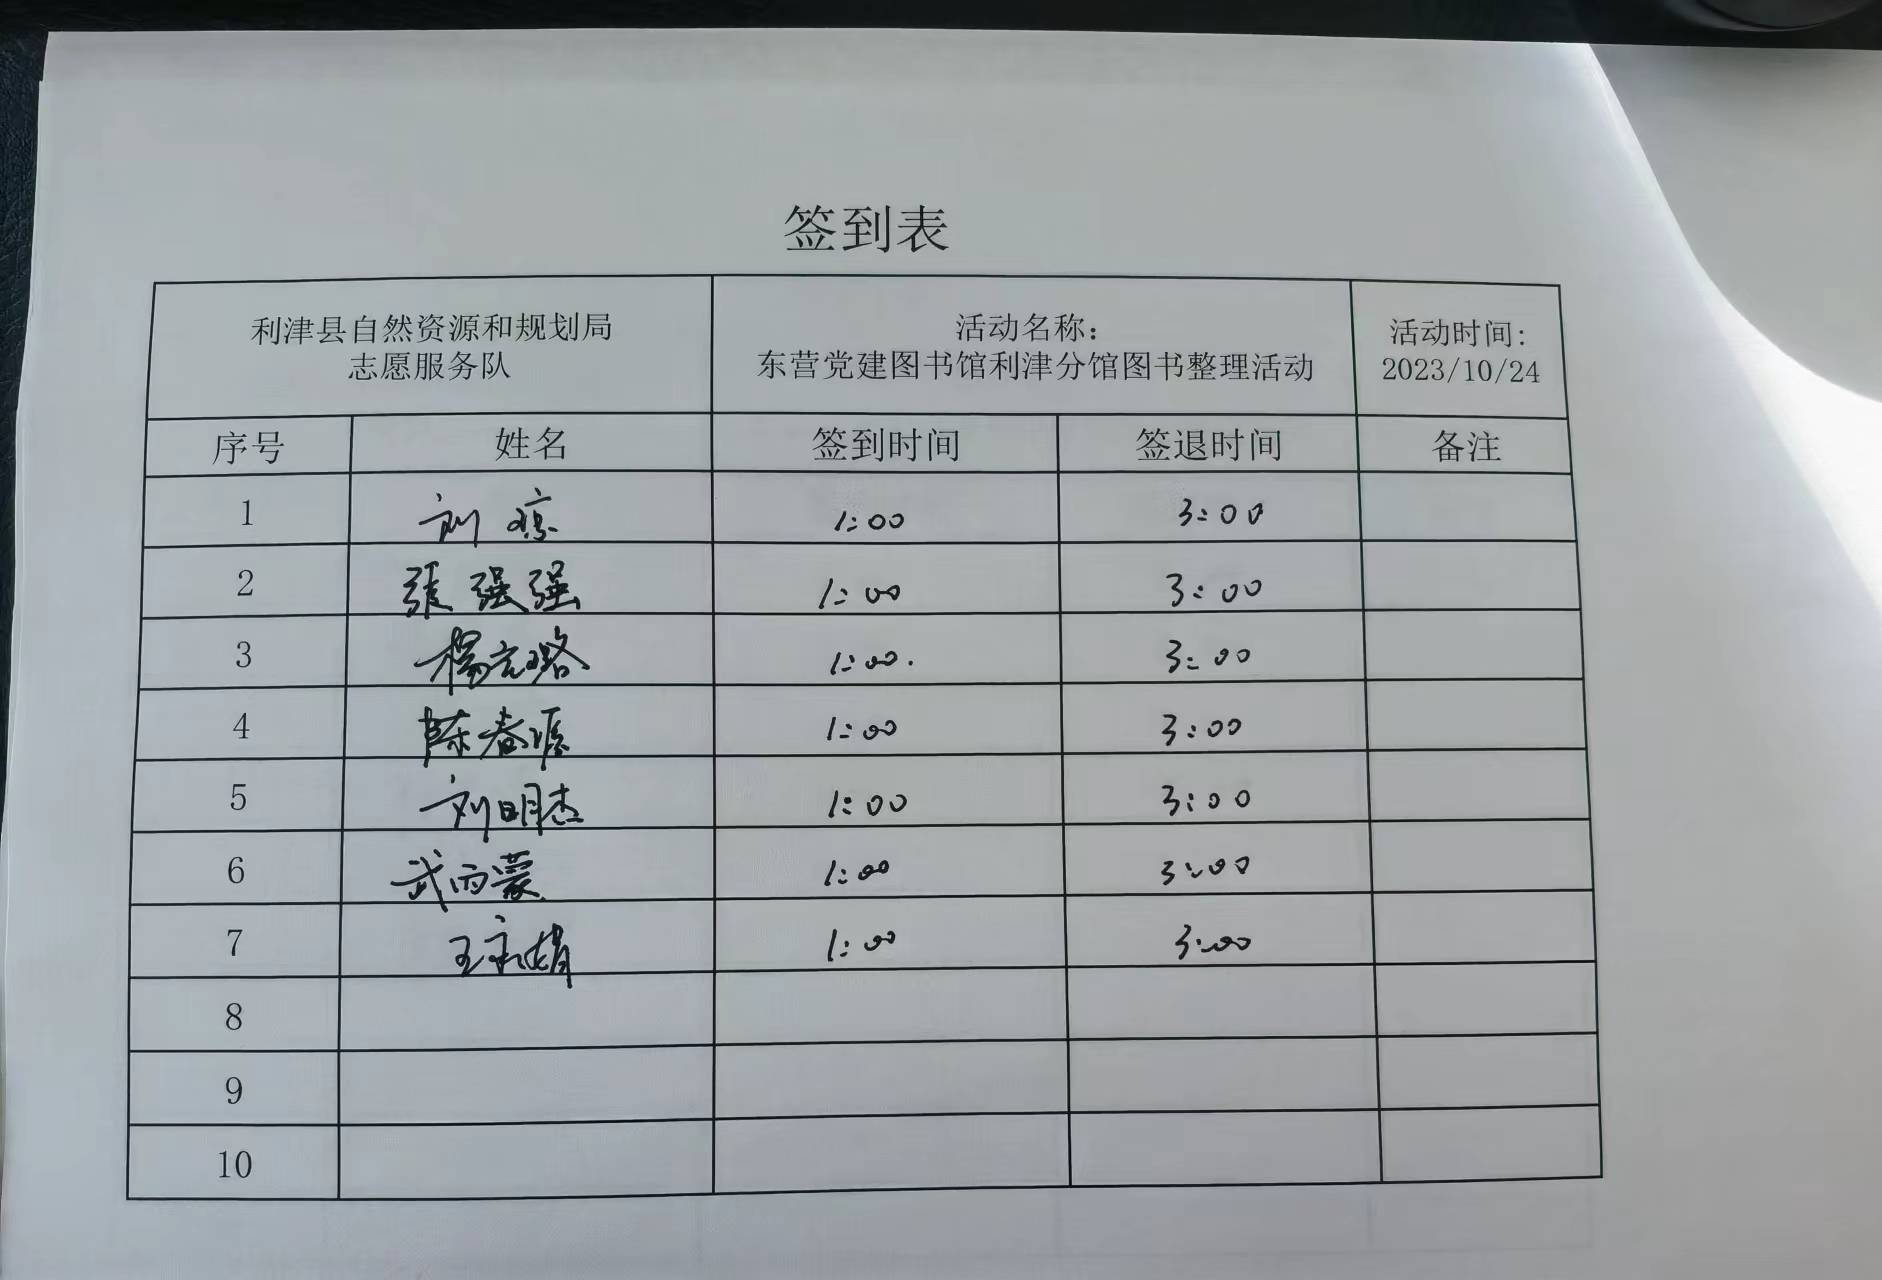 签到表
利津县自然资源和规划局
志愿服务队
活动名称：
东营党建图书馆利津分馆图书整理活动
活动时间：
2023/10/24
序号 姓名 签到时间 签退时间 备注
1 刘琼 1:00 3:00
2 张强强 1:00 3:00
3 杨元璐 1:00. 3:00
4 陈春 1:00 3:00
5 刘明杰 1:00 3:00
6 武雨蒙 1:00 3:00
7 王 娟 1:00 3:00
8
9
10